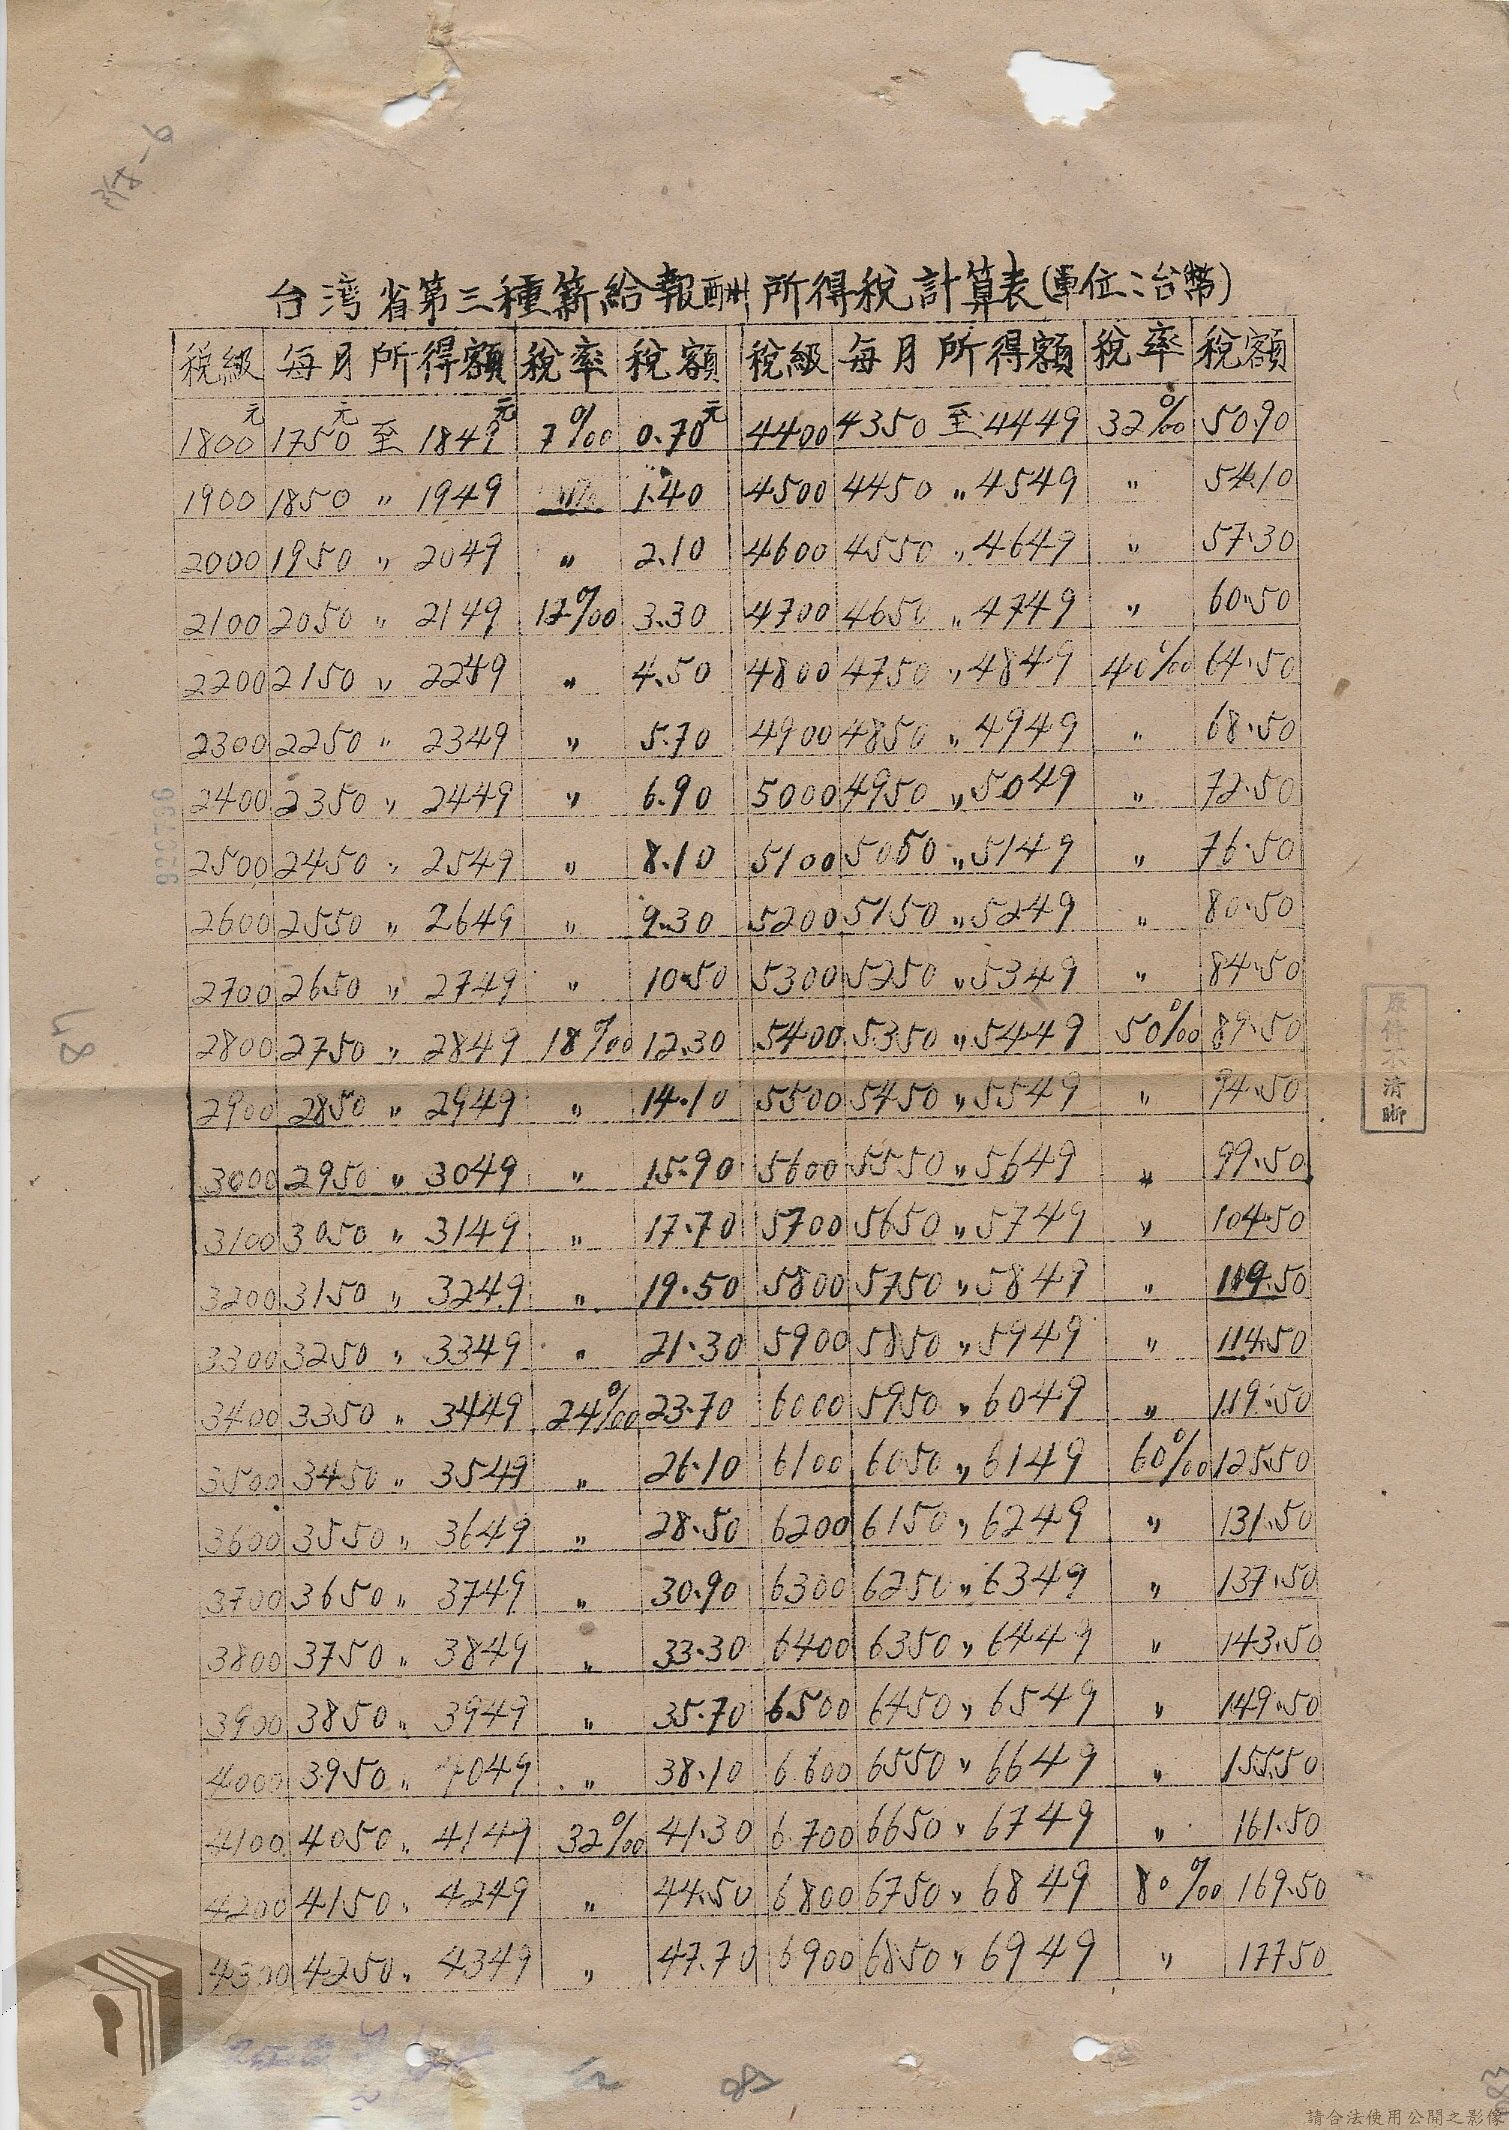 台湾省第三種薪給報酬所得稅計算表(單位:台幣)
稅級 每月所得額 稅率 稅額 稅級 每月所得額 稅率 稅額
1800元 1750元 至 1849元 7‰ 0.70元 4400 4350 至 4449 32‰ 50.90
1900 1850 〃 1949 〃 1.40 4500 4450 〃 4549 〃 54.10
2000 1950 〃 2049 〃 2.10 4600 4550 〃 4649 〃 57.30
2100 2050 〃 2149 12‰ 3.30 4700 4650 〃 4749 〃 60.50
2200 2150 〃 2249 〃 4.50 4800 4750 〃 4849 40‰ 64.50
2300 2250 〃 2349 〃 5.70 4900 4850 〃 4949 〃 68.50
2400 2350 〃 2449 〃 6.90 5000 4950 〃 5049 〃 72.50
2500 2450 〃 2549 〃 8.10 5100 5050 〃 5149 〃 76.50
2600 2550 〃 2649 〃 9.30 5200 5150 〃 5249 〃 80.50
2700 2650 〃 2749 〃 10.50 5300 5250 〃 5349 〃 84.50
2800 2750 〃 2849 18‰ 12.30 5400 5350 〃 5449 50‰ 89.50
2900 2850 〃 2949 〃 14.10 5500 5450 〃 5549 〃 94.50
3000 2950 〃 3049 〃 15.90 5600 5550 〃 5649 〃 99.50
3100 3050 〃 3149 〃 17.70 5700 5650 〃 5749 〃 104.50
3200 3150 〃 3249 〃 19.50 5800 5750 〃 5849 〃 109.50
3300 3250 〃 3349 〃 21.30 5900 5850 〃 5949 〃 114.50
3400 3350 〃 3449 24‰ 23.70 6000 5950 〃 6049 〃 119.50
3500 3450 〃 3549 〃 26.10 6100 6050 〃 6149 60‰ 125.50
3600 3550 〃 3649 〃 28.50 6200 6150 〃 6249 〃 131.50
3700 3650 〃 3749 〃 30.90 6300 6250 〃 6349 〃 137.50
3800 3750 〃 3849 〃 33.30 6400 6350 〃 6449 〃 143.50
3900 3850 〃 3949 〃 35.70 6500 6450 〃 6549 〃 149.50
4000 3950 〃 4049 〃 38.10 6600 6550 〃 6649 〃 155.50
4100 4050 〃 4149 32‰ 41.30 6700 6650 〃 6749 〃 161.50
4200 4150 〃 4249 〃 44.50 6800 6750 〃 6849 80‰ 169.50
4300 4250 〃 4349 〃 47.70 6900 6850 〃 6949 〃 177.50
原件不清晰
48
請合法使用公開之影像